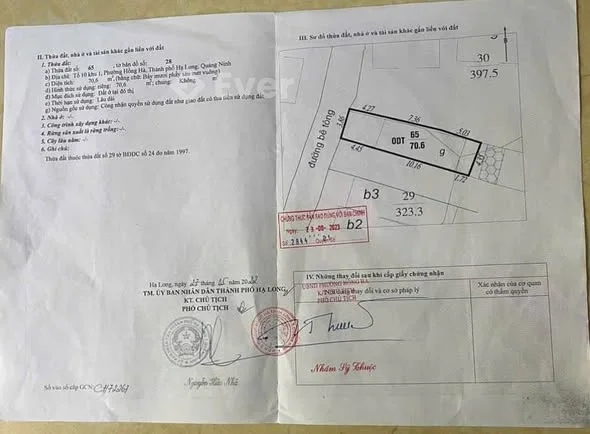 II. Thửa đất, nhà ở và tài sản khác gắn liền với đất
1. Thửa đất:
a) Thửa đất số: 65 , tờ bản đồ số: 28
b) Địa chỉ: Tổ 10 khu 1, Phường Hồng Hà, Thành phố Hạ Long, Quảng Ninh
c) Diện tích: 70,6 m², (bằng chữ: Bảy mươi phẩy sáu mét vuông)
d) Hình thức sử dụng: riêng: 70,6 m²; chung: Không m²
đ) Mục đích sử dụng: Đất ở tại đô thị
e) Thời hạn sử dụng: Lâu dài
g) Nguồn gốc sử dụng: Công nhận quyền sử dụng đất như giao đất có thu tiền sử dụng đất
2. Nhà ở: -/-
3. Công trình xây dựng khác: -/-
4. Rừng sản xuất là rừng trồng: -/-
5. Cây lâu năm: -/-
6. Ghi chú:
Thửa đất thuộc thửa đất số 29 tờ BĐĐC số 24 đo năm 1997.
Ever
Hạ Long, ngày 27 tháng 05
TM. ỦY BAN NHÂN DÂN THÀNH PHỐ HẠ LONG
KT. CHỦ TỊCH
PHÓ CHỦ TỊCH
Nguyễn Hữu Nhã
Số vào sổ cấp GCN:
III. Sơ đồ thửa đất, nhà ở và tài sản khác gắn liền với đất
30
397.5
đường bê tông
3.86
4.27
7.36
5.01
4.35
1.72
10.16
4.45
ODT
65
70.6
g
b3
29
323.3
b2
CHỨNG THỰC BẢN SAO ĐÚNG VỚI BẢN CHÍNH
Ngày:
Số
IV. Những thay đổi sau khi cấp giấy chứng nhận
Nội dung thay đổi và cơ sở pháp lý
Xác nhận của cơ quan
có thẩm quyền
UBND PHƯỜNG HỒNG HÀ
KT. CHỦ TỊCH
PHÓ CHỦ TỊCH
Nhâm Sỹ Thuộc